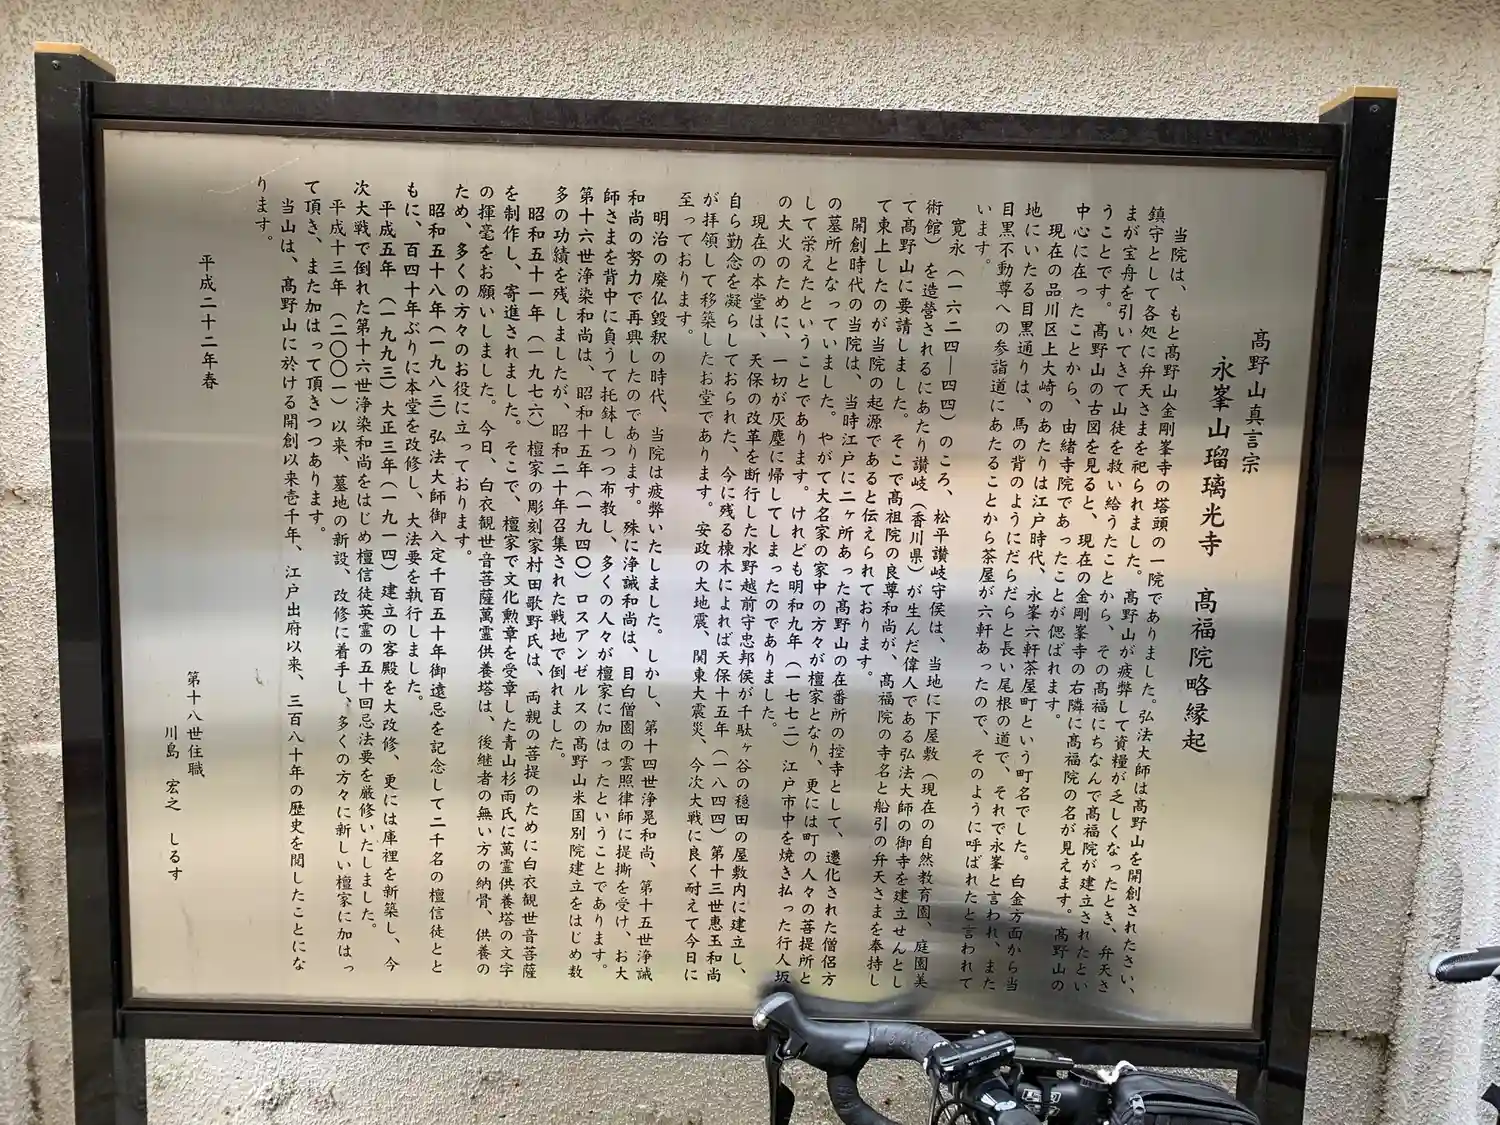 髙野山真言宗
永峯山瑠璃光寺　髙福院略縁起
当院は、もと髙野山金剛峯寺の塔頭の一院でありました。弘法大師は髙野山を開創されたさい、
鎮守として各処に弁天さまを祀られました。髙野山が疲弊して資糧が乏しくなったとき、弁天さ
まが宝舟を引いてきて山徒を救い給うたことから、その髙福にちなんで髙福院が建立されたとい
うことです。髙野山の古図を見ると、現在の金剛峯寺の右隣に髙福院の名が見えます。髙野山の
中心に在ったことから、由緒寺院であったことが偲ばれます。
現在の品川区上大崎のあたりは江戸時代、永峯六軒茶屋町という町名でした。白金方面から当
地にいたる目黒通りは、馬の背のようにだらだらと長い尾根の道で、それで永峯と言われ、また
目黒不動尊への参詣道にあたることから茶屋が六軒あったので、そのように呼ばれたと言われて
います。
寛永（一六二四―四四）のころ、松平讃岐守侯は、当地に下屋敷（現在の自然教育園、庭園美
術館）を造営されるにあたり讃岐（香川県）が生んだ偉人である弘法大師の御寺を建立せんとし
て髙野山に要請しました。そこで髙祖院の良尊和尚が、髙福院の寺名と船引の弁天さまを奉持し
て東上したのが当院の起源であると伝えられております。
開創時代の当院は、当時江戸に二ヶ所あった髙野山の在番所の控寺として、遷化された僧侶方
の墓所となっていました。やがて大名家の家中の方々が檀家となり、更には町の人々の菩提所と
して栄えたということであります。けれども明和九年（一七七二）江戸市中を焼き払った行人坂
の大火のために、一切が灰塵に帰してしまったのでありました。
現在の本堂は、天保の改革を断行した水野越前守忠邦侯が千駄ヶ谷の穏田の屋敷内に建立し、
自ら勤念を凝らしておられた、今に残る棟木によれば天保十五年（一八四四）第十三世恵玉和尚
が拝領して移築したお堂であります。安政の大地震、関東大震災、今次大戦に良く耐えて今日に
至っております。
明治の廃仏毀釈の時代、当院は疲弊いたしました。しかし、第十四世浄晃和尚、第十五世浄誠
和尚の努力で再興したのであります。殊に浄誠和尚は、目白僧園の雲照律師に提撕を受け、お大
師さまを背中に負うて托鉢しつつ布教し、多くの人々が檀家に加はったということであります。
第十六世浄染和尚は、昭和十五年（一九四〇）ロスアンゼルスの髙野山米国別院建立をはじめ数
多の功績を残しましたが、昭和二十年召集された戦地で倒れました。
昭和五十一年（一九七六）檀家の彫刻家村田歌野氏は、両親の菩提のために白衣観世音菩薩
を制作し、寄進されました。そこで、檀家で文化勲章を受章した青山杉雨氏に萬霊供養塔の文字
の揮毫をお願いしました。今日、白衣観世音菩薩萬霊供養塔は、後継者の無い方の納骨、供養の
ため、多くの方々のお役に立っております。
昭和五十八年（一九八三）弘法大師御入定千百五十年御遠忌を記念して二千名の檀信徒とと
もに、百四十年ぶりに本堂を改修し、大法要を執行しました。
平成五年（一九九三）大正三年（一九一四）建立の客殿を大改修、更には庫裡を新築し、今
次大戦で倒れた第十六世浄染和尚をはじめ檀信徒英霊の五十回忌法要を厳修いたしました。
平成十三年（二〇〇一）以来、墓地の新設、改修に着手し、多くの方々に新しい檀家に加はっ
て頂き、また加はって頂きつつあります。
当山は、髙野山に於ける開創以来壱千年、江戸出府以来、三百八十年の歴史を閲したことにな
ります。
平成二十二年春
第十八世住職
川島　宏之　しるす